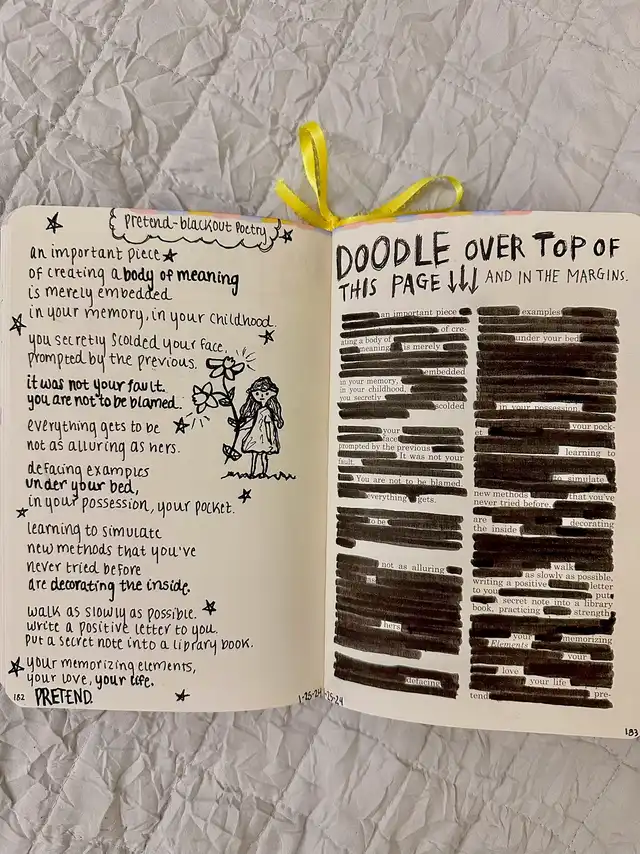 pretend-blackout Poetry
an important piece
of creating a body of meaning
is merely embedded
in your memory, in your childhood.
you secretly scolded your face,
prompted by the previous.
it was not your fault.
you are not to be blamed.
everything gets to be
not as alluring as hers.
defacing examples
under your bed,
in your possession, your pocket.
learning to simulate
new methods that you've
never tried before
are decorating the inside.
walk as slowly as possible.
write a positive letter to you.
put a secret note into a library book.
your memorizing elements,
your love, your life.
PRETEND.
182
1-25-24 1-25-24
DOODLE OVER TOP OF
THIS PAGE ↓↓↓ AND IN THE MARGINS.
an important piece
of cre-
ating a body of
meaning is merely
embedded
in your memory,
in your childhood,
you secretly
scolded
your
face
prompted by the previous
fault. It was not your
You are not to be blamed
everything gets.
to be
not as alluring
as
hers
defacing
examples
under your bed
in your possession
your pock-
et
learning to
to simulate
new methods that you've
never tried before
are decorating
the inside
walk
as slowly as possible,
writing a positive letter
to you put
secret note into a library
book, practicing strength
your memorizing
Elements
your
love your life
pre-
tend
183